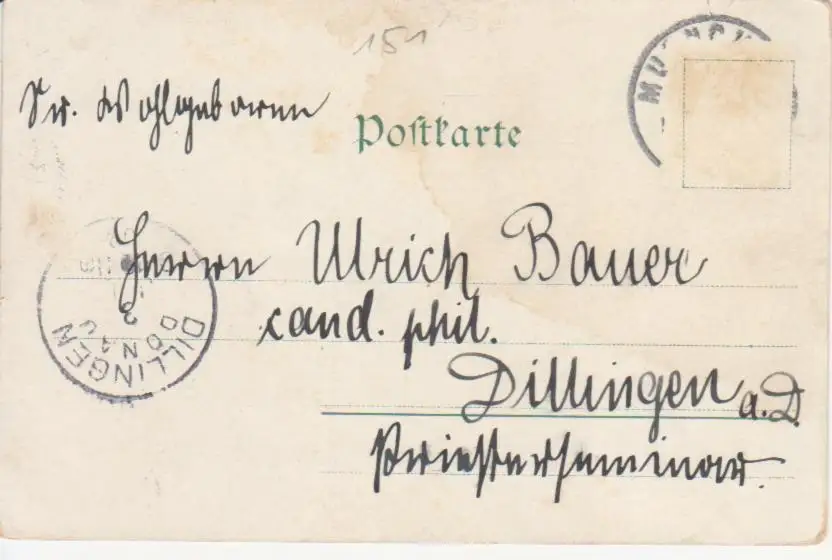 151
MÜNCH
Sr. Wohlgeboren
Postkarte
Herrn Ulrich Bauer
cand. phil.
Dillingen a. D.
Priesterseminar.
DILLINGEN
DONAU